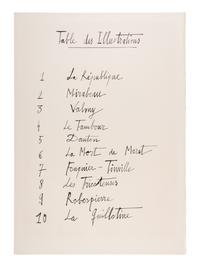 Table des Illustrations
1 La République
2 Mirabeau
3 Valmy
4 Le Tambour
5 Danton
6 La Mort de Marat
7 Fouquier-Tinville
8 Les Tricoteuses
9 Robespierre
10 La Guillotine